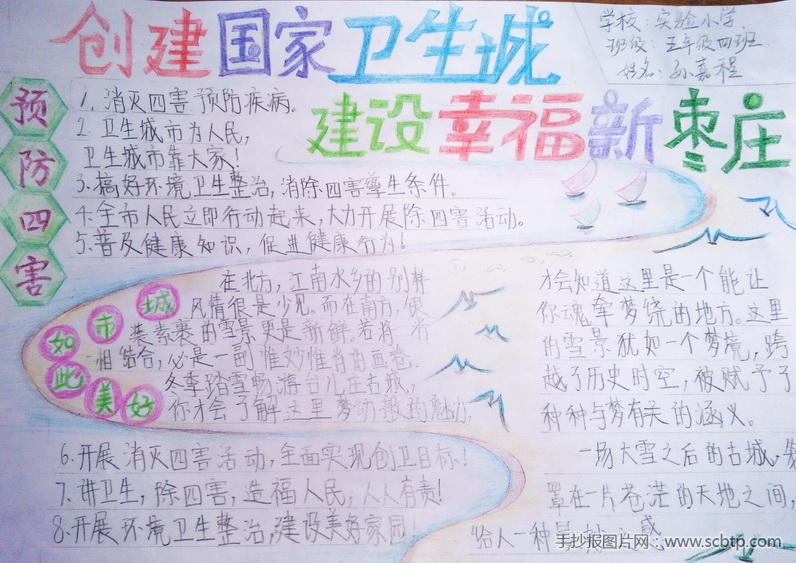 创建国家卫生城
建设幸福新枣庄
学校：实验小学
班级：五年级四班
姓名：孙嘉程
预防四害
1. 消灭四害预防疾病。
2. 卫生城市为人民，
卫生城市靠大家！
3. 搞好环境卫生整治，消除四害孳生条件。
4. 全市人民立即行动起来，大力开展除四害活动。
5. 普及健康知识，促进健康行为！
城市如此美好
在北方，江南水乡的别样
风情很是少见。而在南方，银
装素裹的雪景更是新鲜。若将一者
相结合，必是一副惟妙惟肖的画卷。
冬季踏雪畅游台儿庄古城，
你才会了解这里梦幻般的魅力，
才会知道这里是一个能让
你魂牵梦绕的地方。这里
的雪景犹如一个梦境，跨
越了历史时空，被赋予了
种种与梦有关的涵义。
一场大雪之后的古城，
罩在一片苍茫的天地之间，
给人一种
之感
6. 开展消灭四害活动，全面实现创卫目标！
7. 讲卫生，除四害，造福人民，人人有责！
8. 开展环境卫生整治，建设美好家园！
手抄报图片网：www.scbtp.com